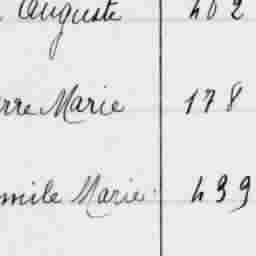 Auguste 402
erre Marie 178
mile Marie 499